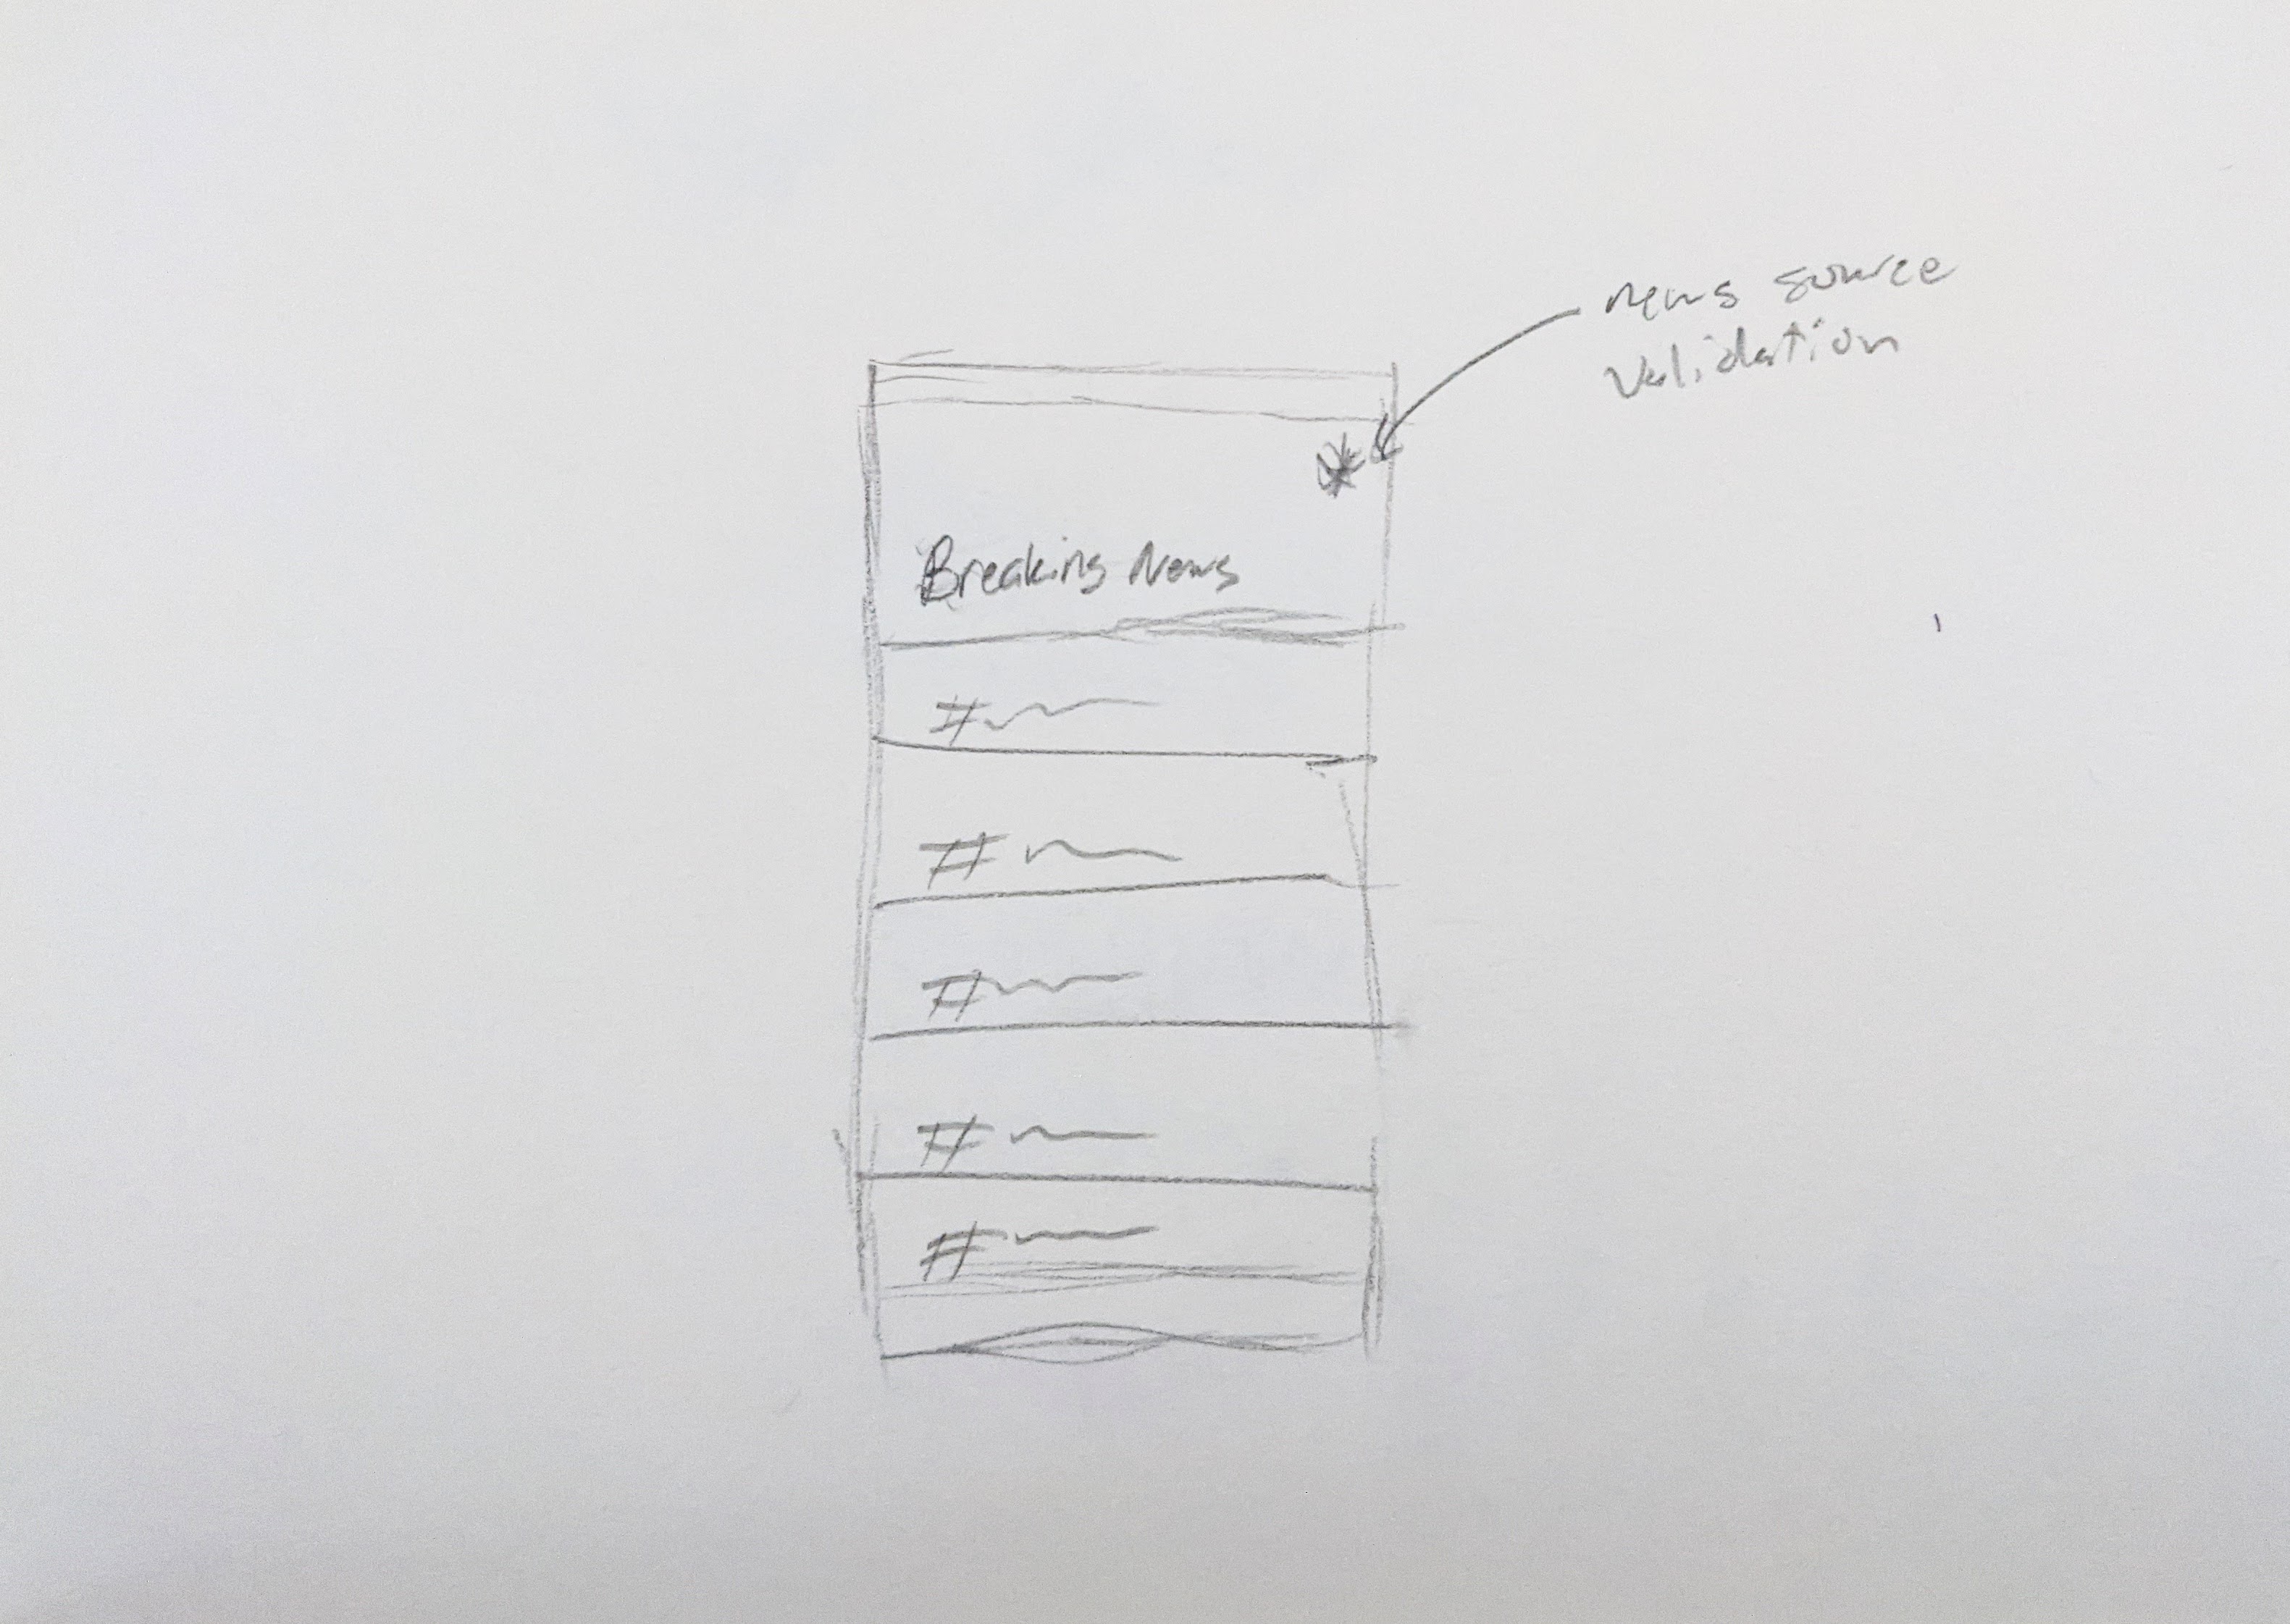 news source
validation
*
Breaking News
#
#
#
#
#